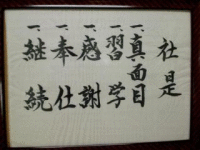 社是
一、真面目
一、習学
一、感謝
一、奉仕
一、継続